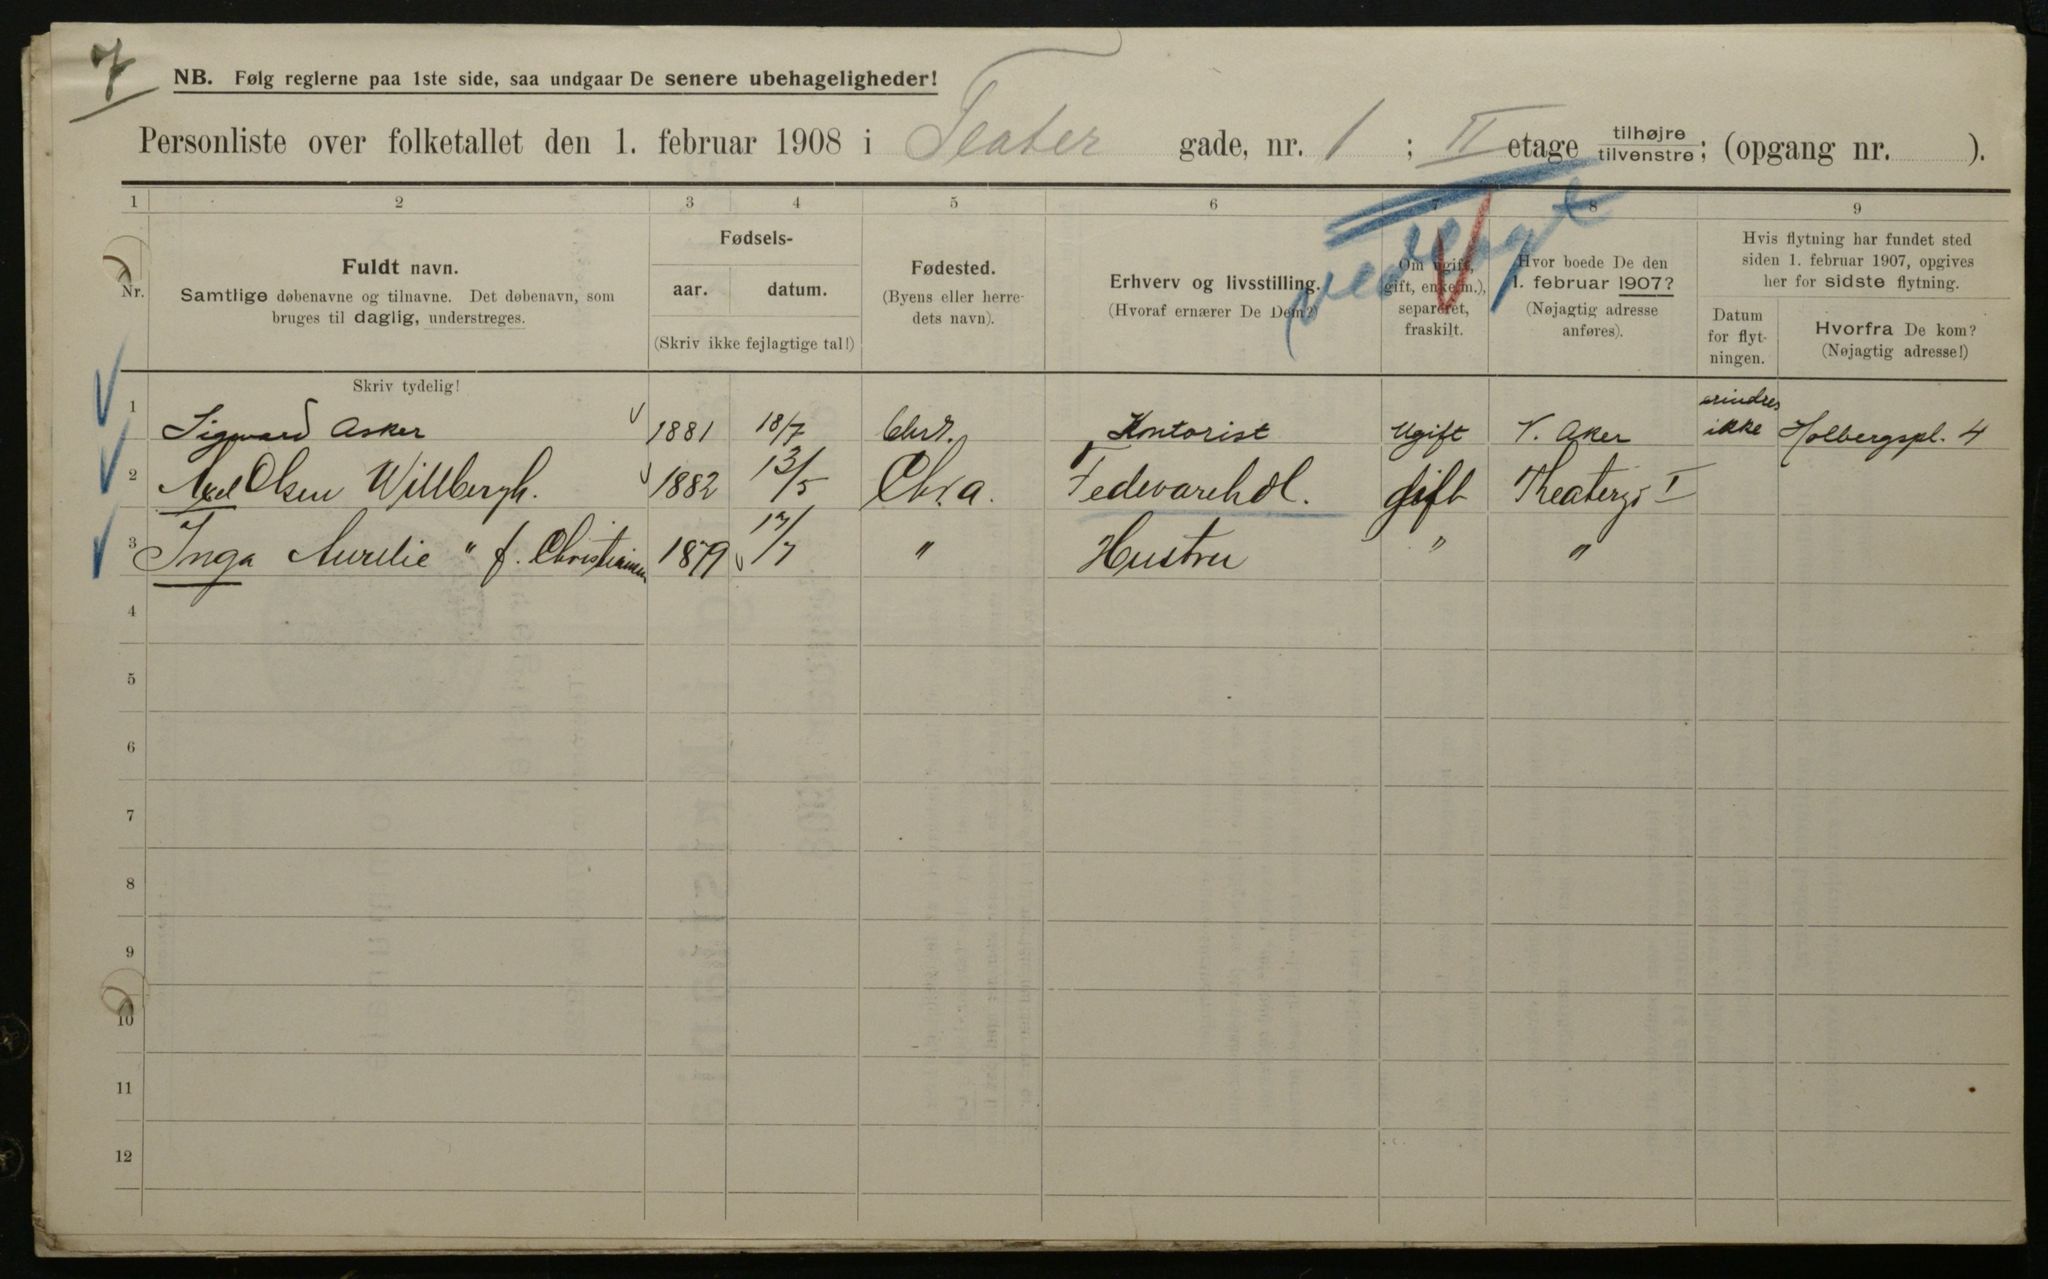 7
NB. Følg reglerne paa 1ste side, saa undgaar De senere ubehageligheder!
Personliste over folketallet den 1. februar 1908 i Teater gade, nr. 1 ; II etage tilhøjre tilvenstre; (opgang nr. ).
1 2 3 4 5 6 7 8 9
Nr.
Fuldt navn.
Samtlige døbenavne og tilnavne. Det døbenavn, som
bruges til daglig, understreges.
Skriv tydelig!
Fødsels-
aar. datum.
(Skriv ikke fejlagtige tal!)
Fødested.
(Byens eller herre-
dets navn).
Erhverv og livsstilling.
(Hvoraf ernærer De Dem?)
Om ugift,
gift, enke(m.),
separeret,
fraskilt.
Hvor boede De den
1. februar 1907?
(Nøjagtig adresse
anføres).
Hvis flytning har fundet sted
siden 1. februar 1907, opgives
her for sidste flytning.
Datum
for flyt-
ningen.
Hvorfra De kom?
(Nøjagtig adresse!)
vedlagt
1 Sigward Asker 1881 18/7 Chr. Kontorist Ugift V. Aker erindres ikke Holbergspl. 4
2 Axel Olsen Willbergh. 1882 13/5 Chr.a. Fedevarehdl. Gift Theatergd I
3 Inga Aurelie " f. Christiansen 1879 17/7 " Hustru " "
4
5
6
7
8
9
10
11
12